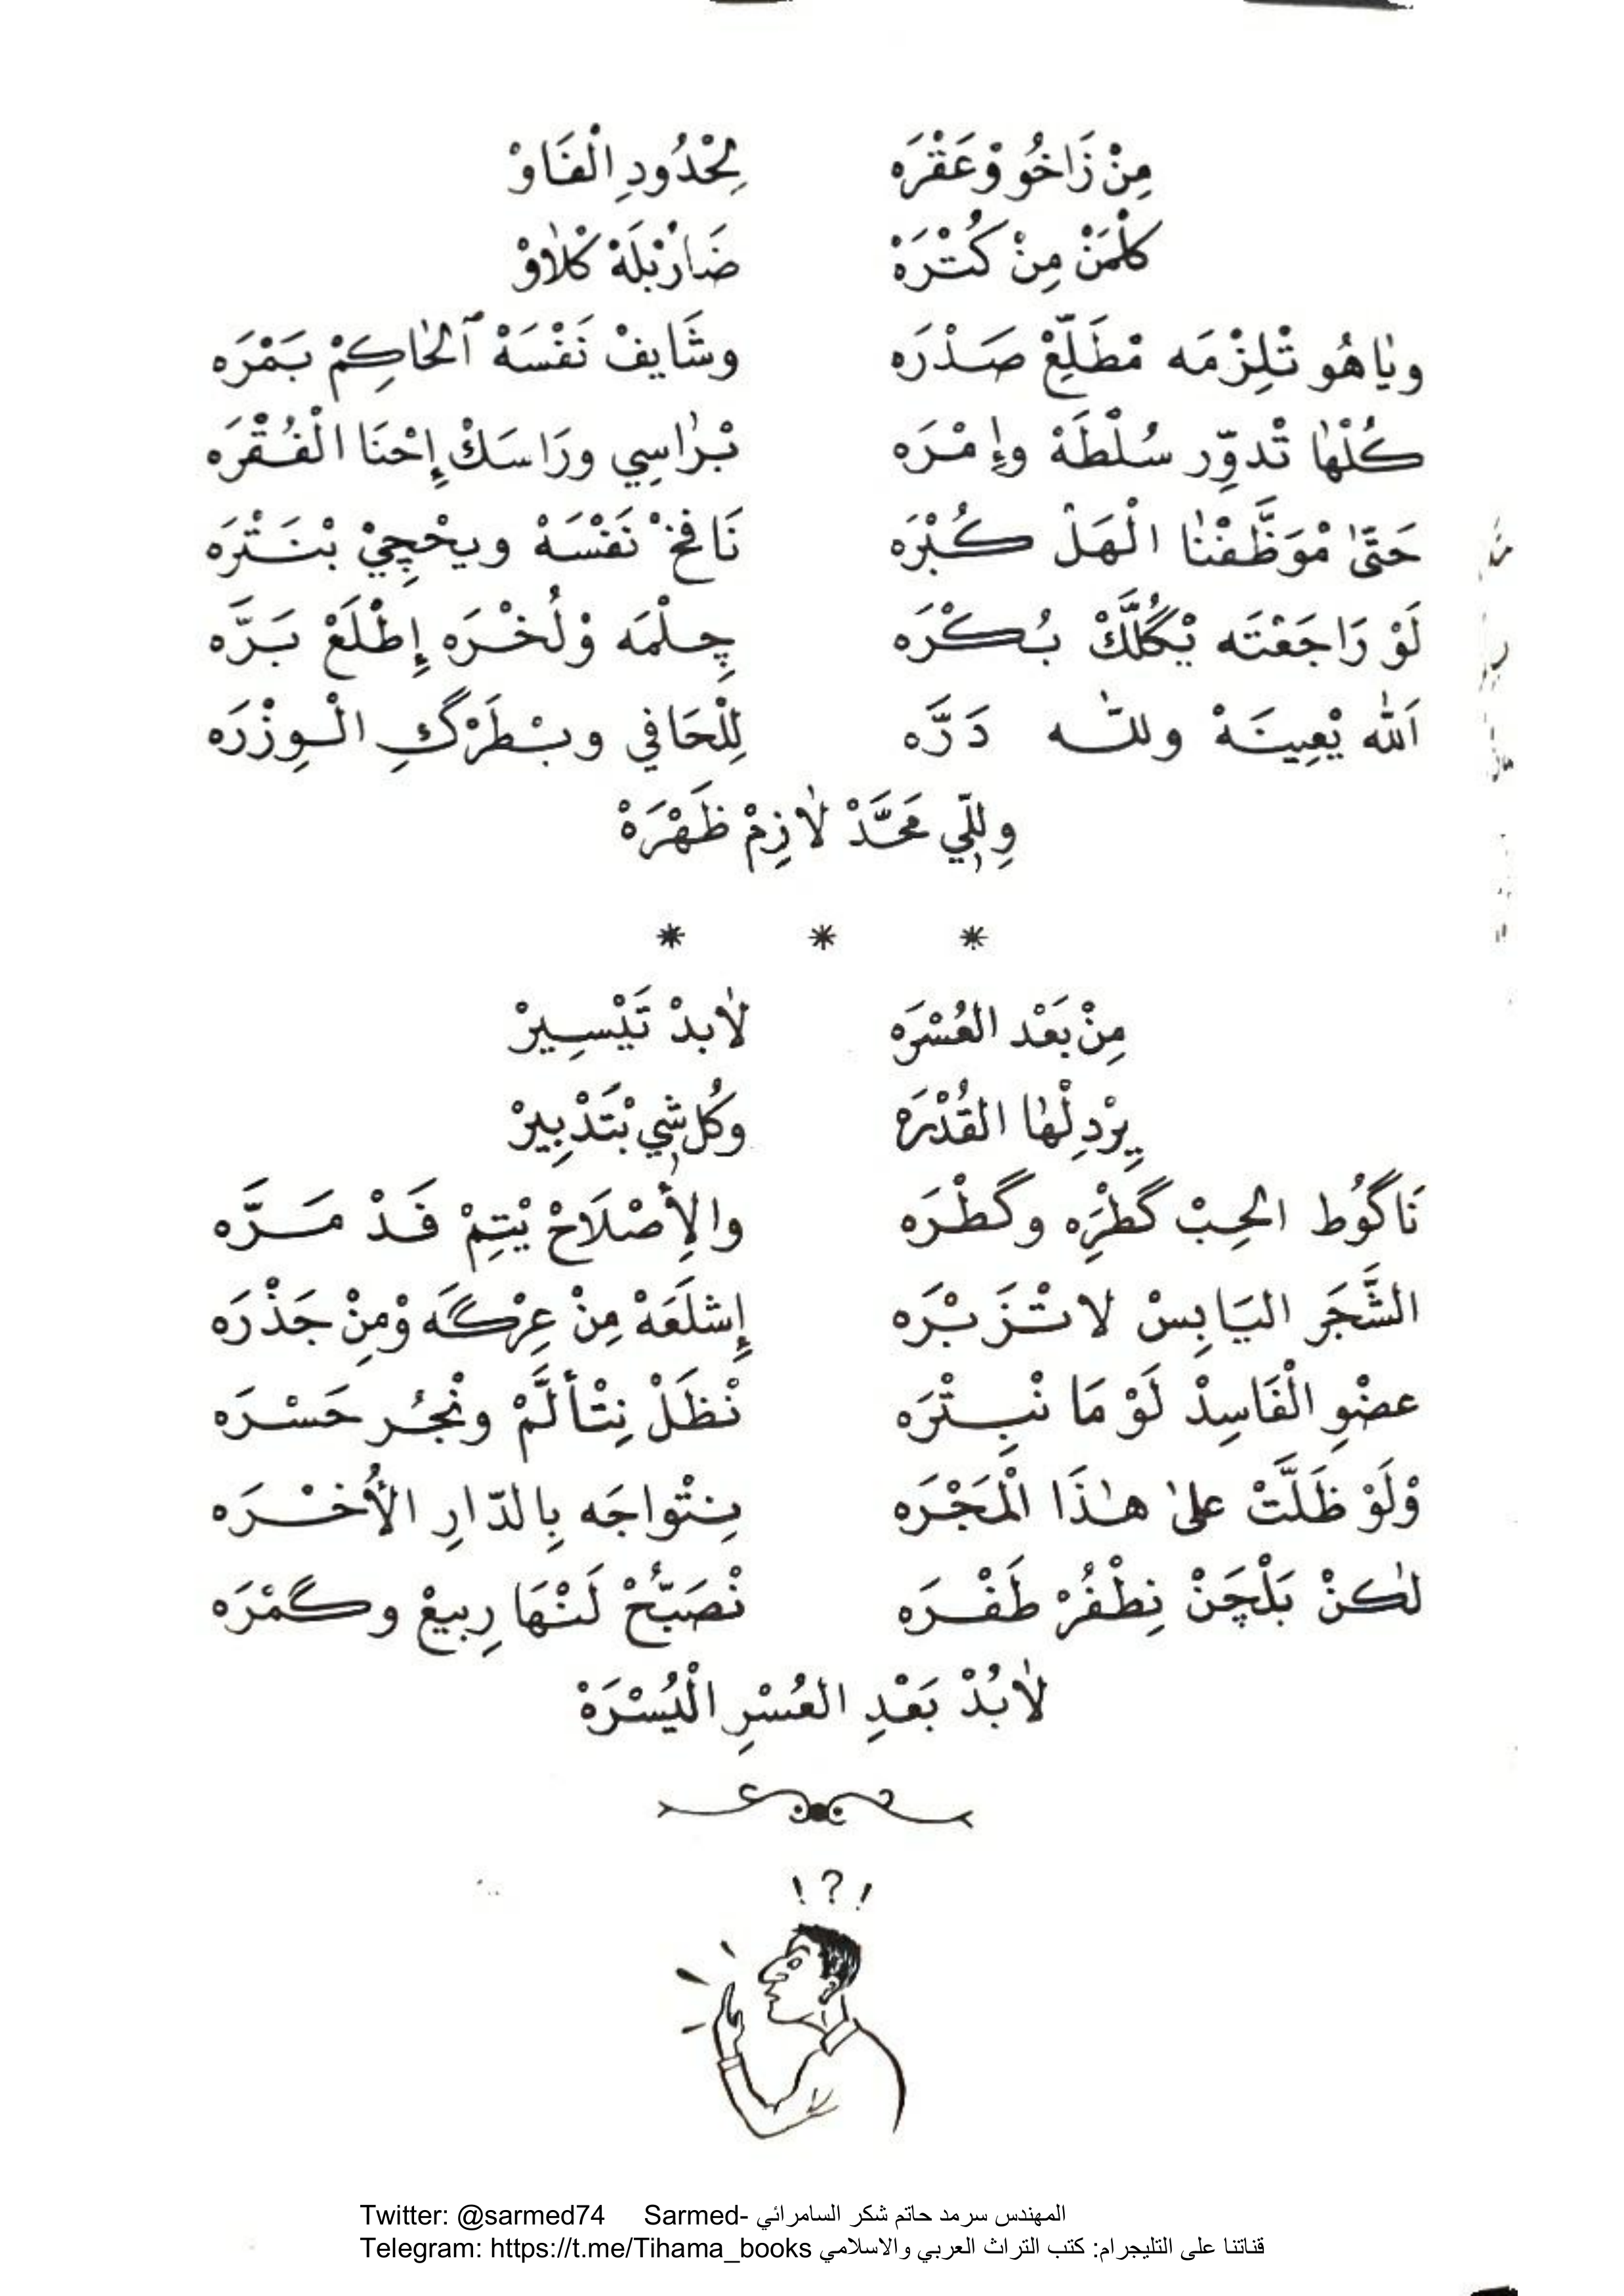 مِنْ زَاخُو وْعَقْرَه لِحْدُودِ الْفَاوْ
كلْمَنْ مِنْ كُتْرَهْ ضَارْبْلَهْ كْلاوْ
ويٰاهُو تْلِزْمَه مْطَلِّعْ صَدْرَه وشَايفْ نَفْسَهْ آلْحٰاكِمْ بَمْرَه
كُلْهٰا تْدوِّر سُلْطَهْ وإِمْرَه بْرٰاسِي ورَاسَكْ إِحْنَا الْفُقْرَه
حَتّىٰ مْوَظَّفْنٰا الْهَلْ كُبْرَه نَافخْ نَفْسَهْ ويحْچِيْ بْنَتْرَه
لَوْ رَاجَعْتَه يْگُلَّكْ بُكْرَه چِلْمَه وْلُخْرَه إِطْلَعْ بَرَّه
اَللّٰه يْعِينَهْ وللّٰه دَرَّه لِلْحَافي وبسْطَرْگِ الْوِزْرَه
وِللّي محَمَّدْ لٰازِمْ ظَهْرَهْ
* * *
مِنْ بَعْد العُسْرَه لٰابدْ تَيْسِيرْ
يِرْدِلْهٰا القُدْرَهْ وكُل شِي بْتَدْبِيرْ
نَاگُوط الحِبْ گَطْرَه وگَطْرَه والإِصْلَاحْ يْتِمْ فَدْ مَرَّه
الشَّجَر اليَابِسْ لا تْزَبْرَه إِشلَعَهْ مِنْ عِرْگَه وْمِنْ جَذْرَه
عضْوِ الْفَاسِدْ لَوْ مَا نْبِتْرَه نْظَلْ نِتْألَّمْ ونْجُر حَسْرَه
وْلَوْ ظَلَّتْ علىٰ هٰذَا الْمَجْرَه نِتْواجَه بِالدّارِ الأُخْرَه
لٰكنْ بَلْچَنْ نِطْفُرْ طَفْرَه نْصَبُّحْ لَنْهَا رِبيعْ وگَمْرَه
لٰابُدْ بَعْدِ العُسْرِ الْيُسْرَهْ
! ? !
Twitter: @sarmed74 Sarmed- المهندس سرمد حاتم شكر السامرائي
Telegram: https://t.me/Tihama_books قناتنا على التليجرام: كتب التراث العربي والاسلامي